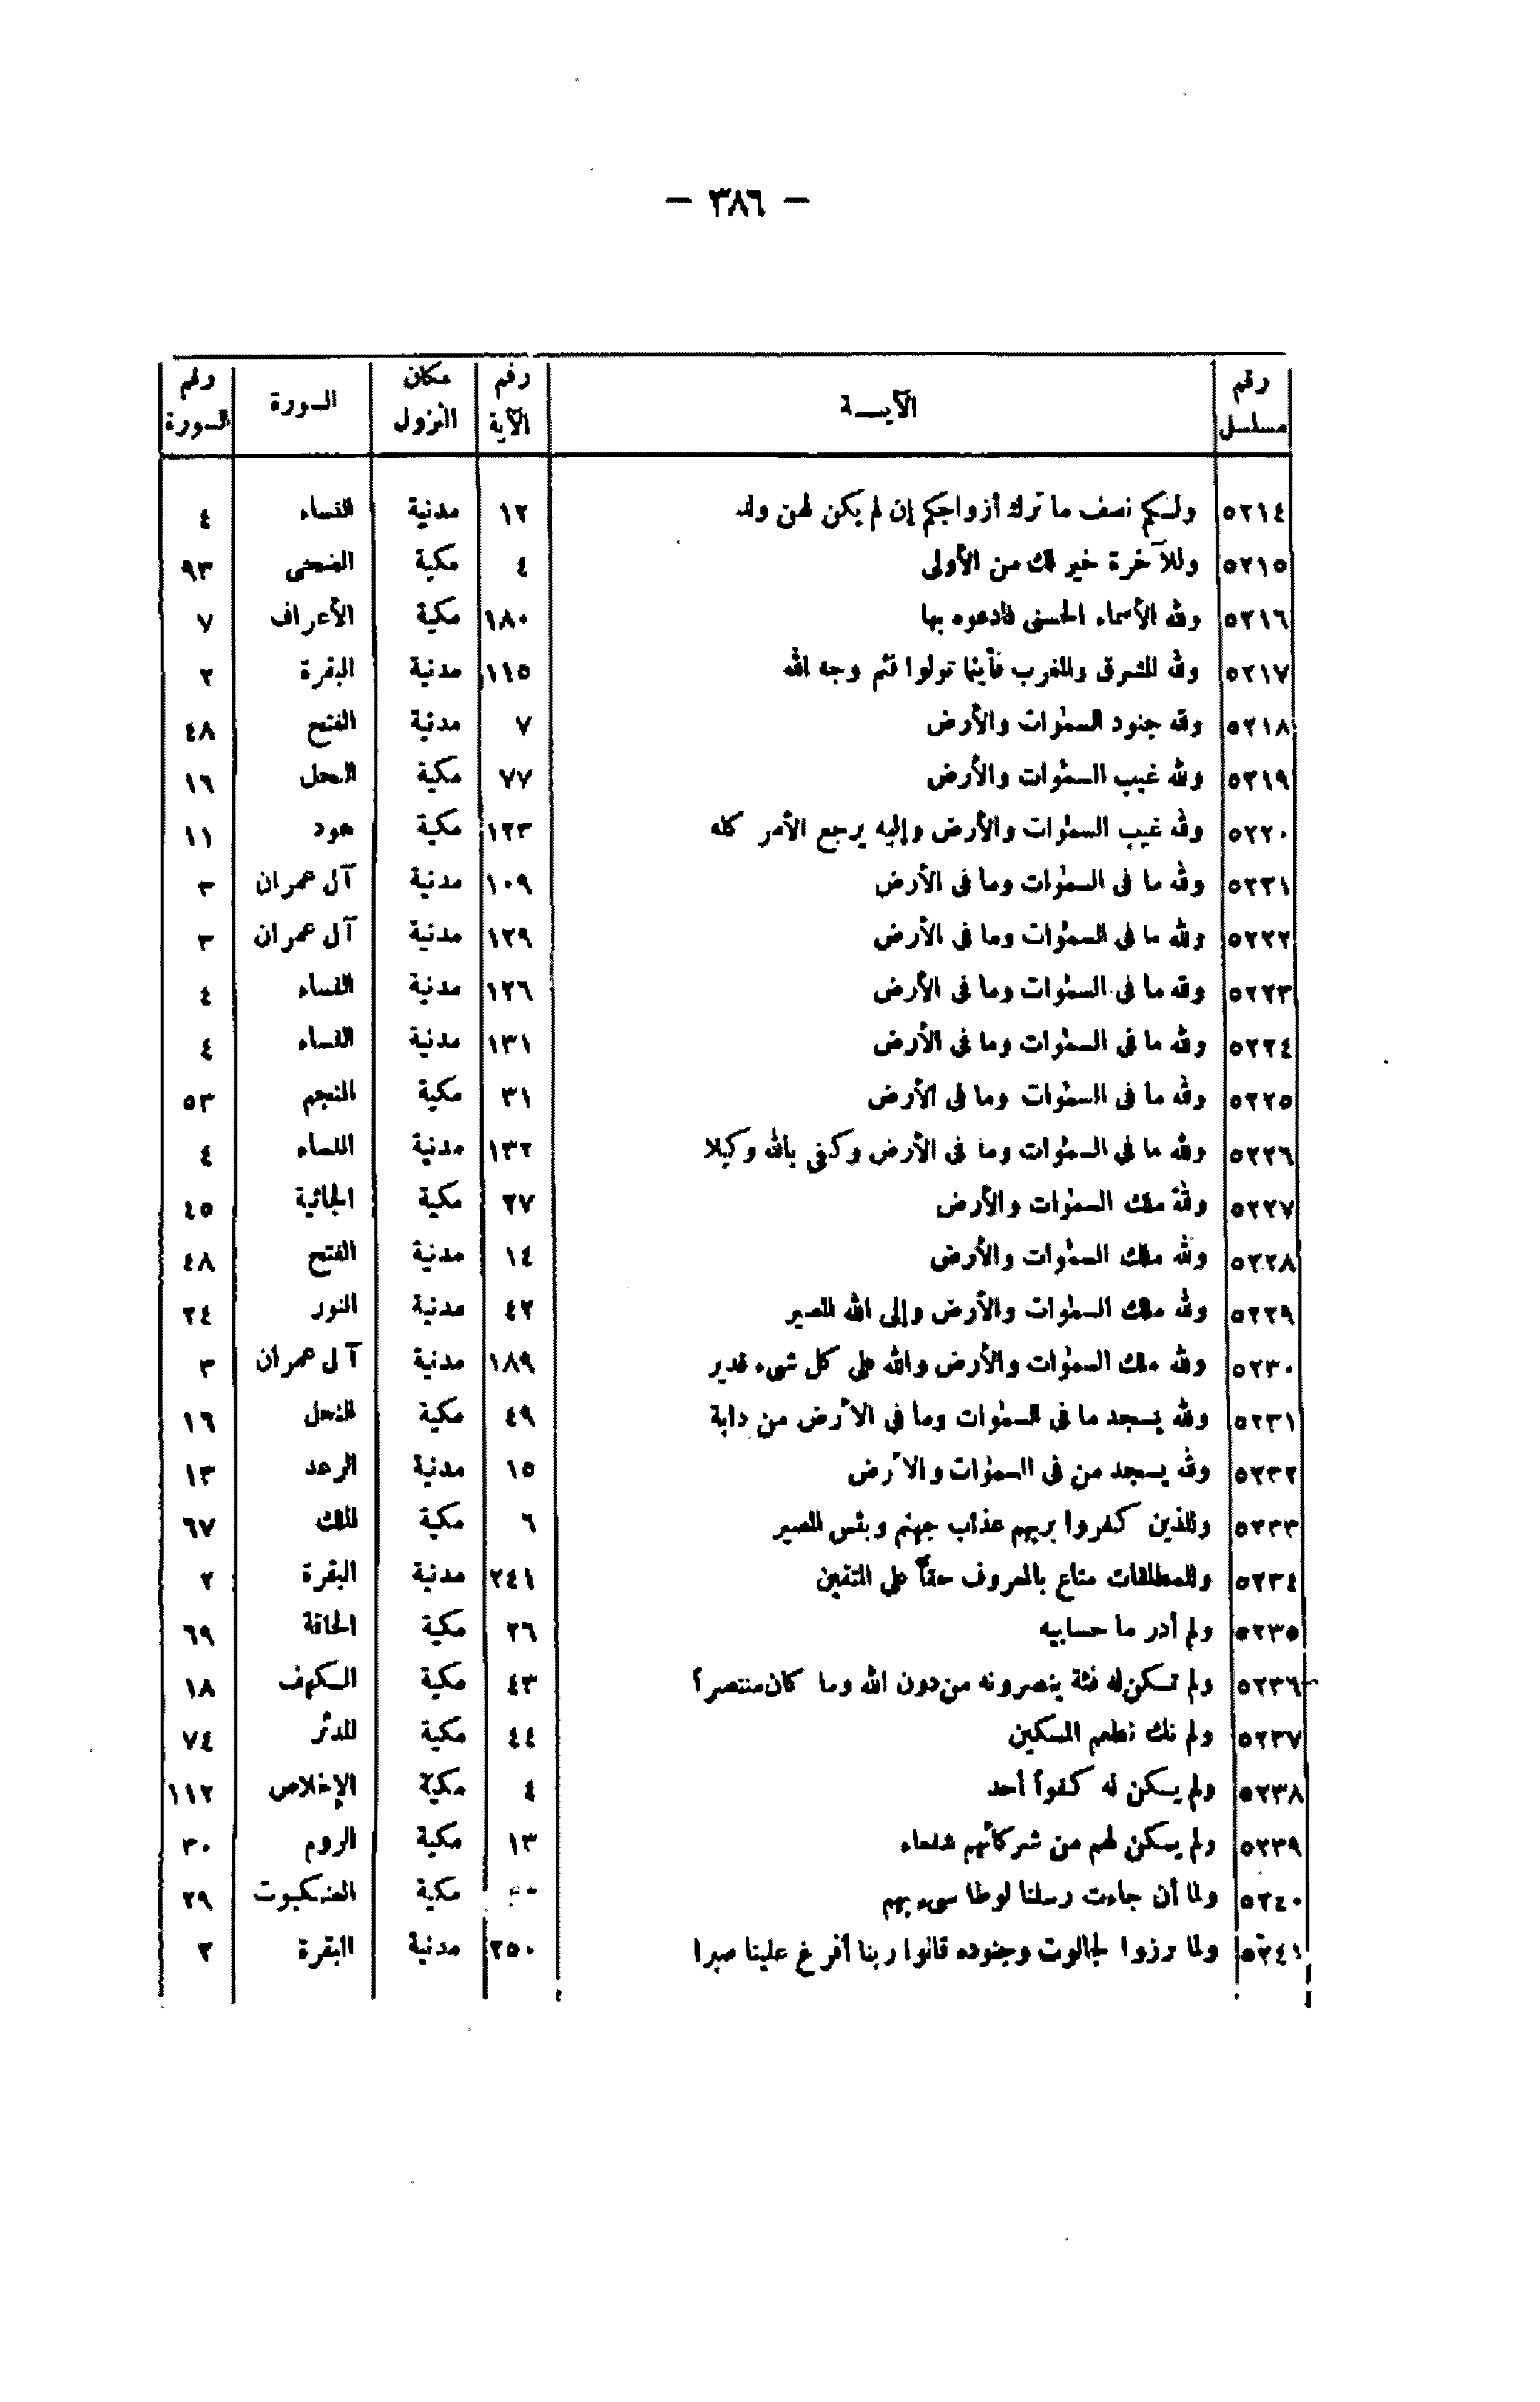 — ٣٨٦ —
رقم مسلسل | الآيــة | رقم الآية | مكان النزول | السورة | رقم السورة
٥٢١٤ | ولكم نصف ما ترك أزواجكم إن لم يكن لهن ولد | ١٢ | مدنية | النساء | ٤
٥٢١٥ | وللآخرة خير لك من الأولى | ٤ | مكية | الضحى | ٩٣
٥٢١٦ | ولله الأسماء الحسنى فادعوه بها | ١٨٠ | مكية | الأعراف | ٧
٥٢١٧ | ولله المشرق والمغرب فأينما تولوا فثم وجه الله | ١١٥ | مدنية | البقرة | ٢
٥٢١٨ | ولله جنود السمٰوات والأرض | ٧ | مدنية | الفتح | ٤٨
٥٢١٩ | ولله غيب السمٰوات والأرض | ٧٧ | مكية | النحل | ١٦
٥٢٢٠ | ولله غيب السمٰوات والأرض وإليه يرجع الأمر كله | ١٢٣ | مكية | هود | ١١
٥٢٢١ | ولله ما فى السمٰوات وما فى الأرض | ١٠٩ | مدنية | آل عمران | ٣
٥٢٢٢ | ولله ما فى السمٰوات وما فى الأرض | ١٢٩ | مدنية | آل عمران | ٣
٥٢٢٣ | ولله ما فى السمٰوات وما فى الأرض | ١٢٦ | مدنية | النساء | ٤
٥٢٢٤ | ولله ما فى السمٰوات وما فى الأرض | ١٣١ | مدنية | النساء | ٤
٥٢٢٥ | ولله ما فى السمٰوات وما فى الأرض | ٣١ | مكية | النجم | ٥٣
٥٢٢٦ | ولله ما فى السمٰوات وما فى الأرض وكفى بالله وكيلا | ١٣٢ | مدنية | النساء | ٤
٥٢٢٧ | ولله ملك السمٰوات والأرض | ٢٧ | مكية | الجاثية | ٤٥
٥٢٢٨ | ولله ملك السمٰوات والأرض | ١٤ | مدنية | الفتح | ٤٨
٥٢٢٩ | ولله ملك السمٰوات والأرض وإلى الله المصير | ٤٢ | مدنية | النور | ٢٤
٥٢٣٠ | ولله ملك السمٰوات والأرض والله على كل شىء قدير | ١٨٩ | مدنية | آل عمران | ٣
٥٢٣١ | ولله يسجد ما فى السمٰوات وما فى الأرض من دابة | ٤٩ | مكية | النحل | ١٦
٥٢٣٢ | ولله يسجد من فى السمٰوات والأرض | ١٥ | مدنية | الرعد | ١٣
٥٢٣٣ | وللذين كفروا بربهم عذاب جهنم وبئس المصير | ٦ | مكية | الملك | ٦٧
٥٢٣٤ | وللمطلقات متاع بالمعروف حقاً على المتقين | ٢٤١ | مدنية | البقرة | ٢
٥٢٣٥ | ولم أدر ما حسابيه | ٢٦ | مكية | الحاقة | ٦٩
٥٢٣٦ | ولم تكن له فئة ينصرونه من دون الله وما كان منتصراً | ٤٣ | مكية | الكهف | ١٨
٥٢٣٧ | ولم نك نطعم المسكين | ٤٤ | مكية | المدثر | ٧٤
٥٢٣٨ | ولم يكن له كفواً أحد | ٤ | مكية | الإخلاص | ١١٢
٥٢٣٩ | ولم يكن لهم من شركائهم شفعاء | ١٣ | مكية | الروم | ٣٠
٥٢٤٠ | ولما أن جاءت رسلنا لوطا سىء بهم | مكية | العنكبوت | ٢٩
٥٢٤١ | ولما برزوا لجالوت وجنوده قالوا ربنا أفرغ علينا صبرا | ٢٥٠ | مدنية | البقرة | ٢